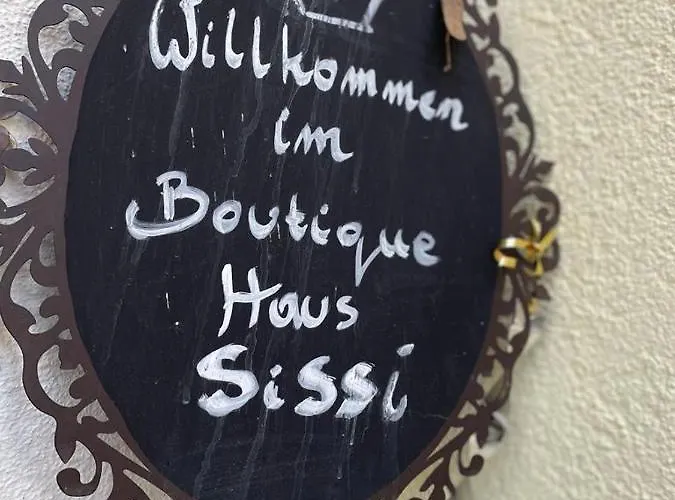 Willkommen
im
Boutique
Haus
Sissi